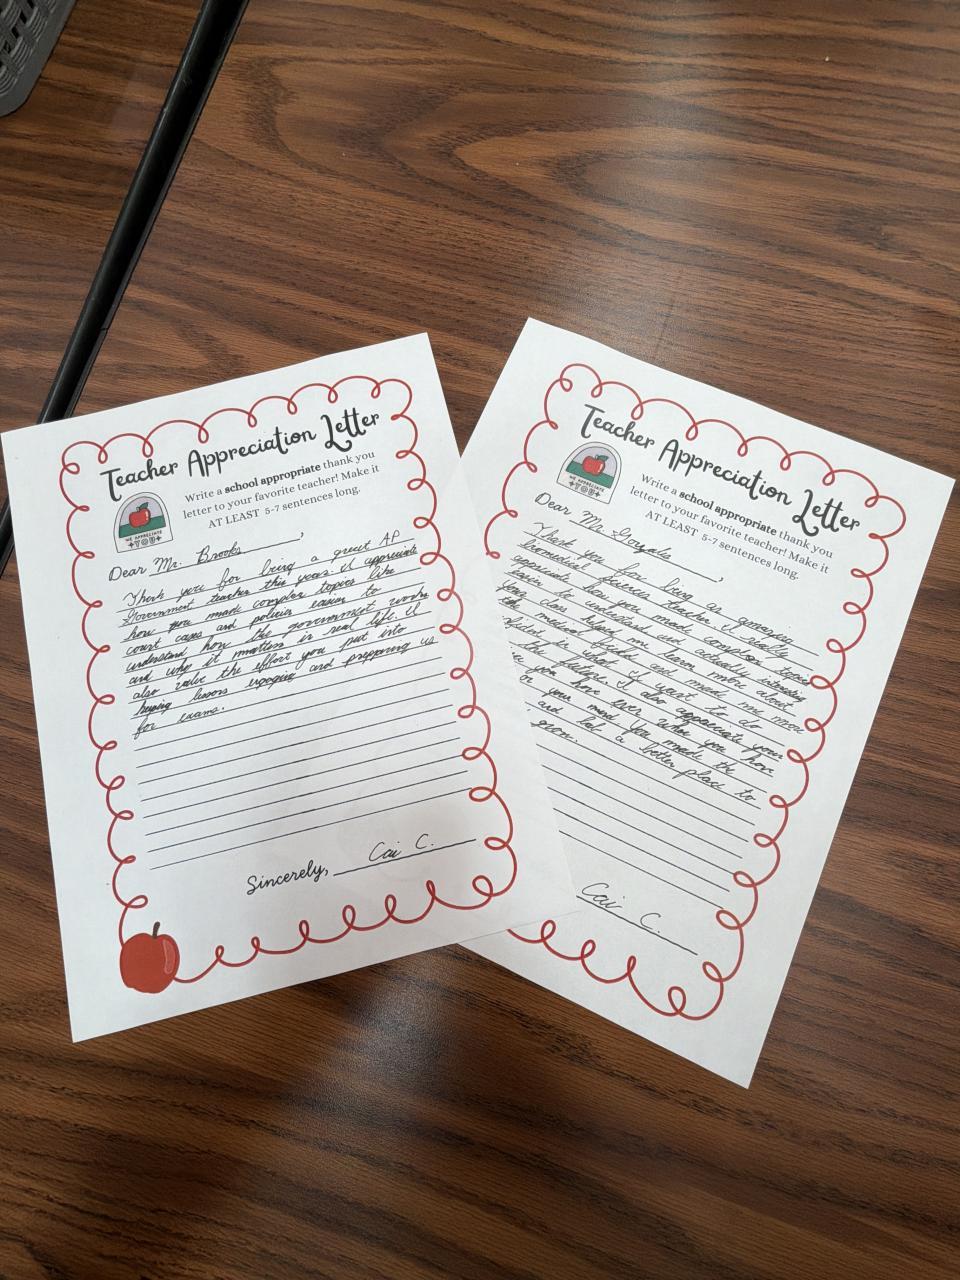 Teacher Appreciation Letter
Write a school appropriate thank you
letter to your favorite teacher! Make it
AT LEAST 5-7 sentences long.
WE APPRECIATE
YOU
Dear Mr. Brooks,
Thank you for being a great AP
Government teacher this year. I appreciate
how you made complex topics like
court cases and policies easier to
understand how the government works
and why it matters in real life. I
also value the effort you put into
lessons and preparing us
for exams.
Sincerely, Cai C.
Teacher Appreciation Letter
Write a school appropriate thank you
letter to your favorite teacher! Make it
AT LEAST 5-7 sentences long.
WE APPRECIATE
YOU
Dear Mr. Gonzales,
Thank you for being an amazing
biomedical science teacher. I really
appreciate how you made complex topics
easier to understand and actually interesting
Your class helped me learn more about
the medical field and made me more
in what I want to do
the future. I also appreciate your
you have even when you have
on your mind. You made the
and lab a better place to
grow.
Cai C.